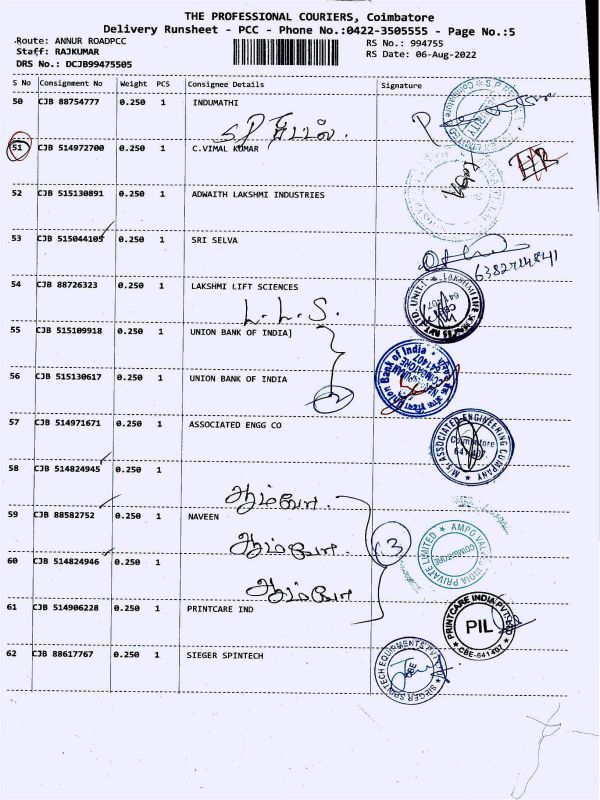 THE PROFESSIONAL COURIERS, Coimbatore
Delivery Runsheet - PCC - Phone No.:0422-3505555 - Page No.:5
Route: ANNUR ROADPCC
RS No.: 994755
Staff: RAJKUMAR
RS Date: 06-Aug-2022
DRS No.: DCJB99475505
S No Consignment No Weight PCS Consignee Details Signature
50 CJB 88754777 0.250 1 INDUMATHI
51 CJB 514972700 0.250 1 C.VIMAL KUMAR
52 CJB 515130891 0.250 1 ADWAITH LAKSHMI INDUSTRIES
53 CJB 515044105 0.250 1 SRI SELVA
6382714841
54 CJB 88726323 0.250 1 LAKSHMI LIFT SCIENCES
L.L.S.
55 CJB 515109918 0.250 1 UNION BANK OF INDIA]
Union Bank of India
COIMBATORE
641407
56 CJB 515130617 0.250 1 UNION BANK OF INDIA
2
57 CJB 514971671 0.250 1 ASSOCIATED ENGG CO
M/s ASSOCIATED ENGINEERING COMPANY
Coimbatore
641 407.
58 CJB 514824945 0.250 1
ஆம்வோ.
59 CJB 88582752 0.250 1 NAVEEN
ஆம்வோ.
3
AMPO VALVES INDIA PRIVATE LIMITED
COIMBATORE
60 CJB 514824946 0.250 1
ஆம்வோ
61 CJB 514906228 0.250 1 PRINTCARE IND
PRINTCARE INDIA PVT LTD
PIL
CBE-641407
62 CJB 88617767 0.250 1 SIEGER SPINTECH
SIEGER SPINTECH EQUIPMENTS PVT LTD
CBE